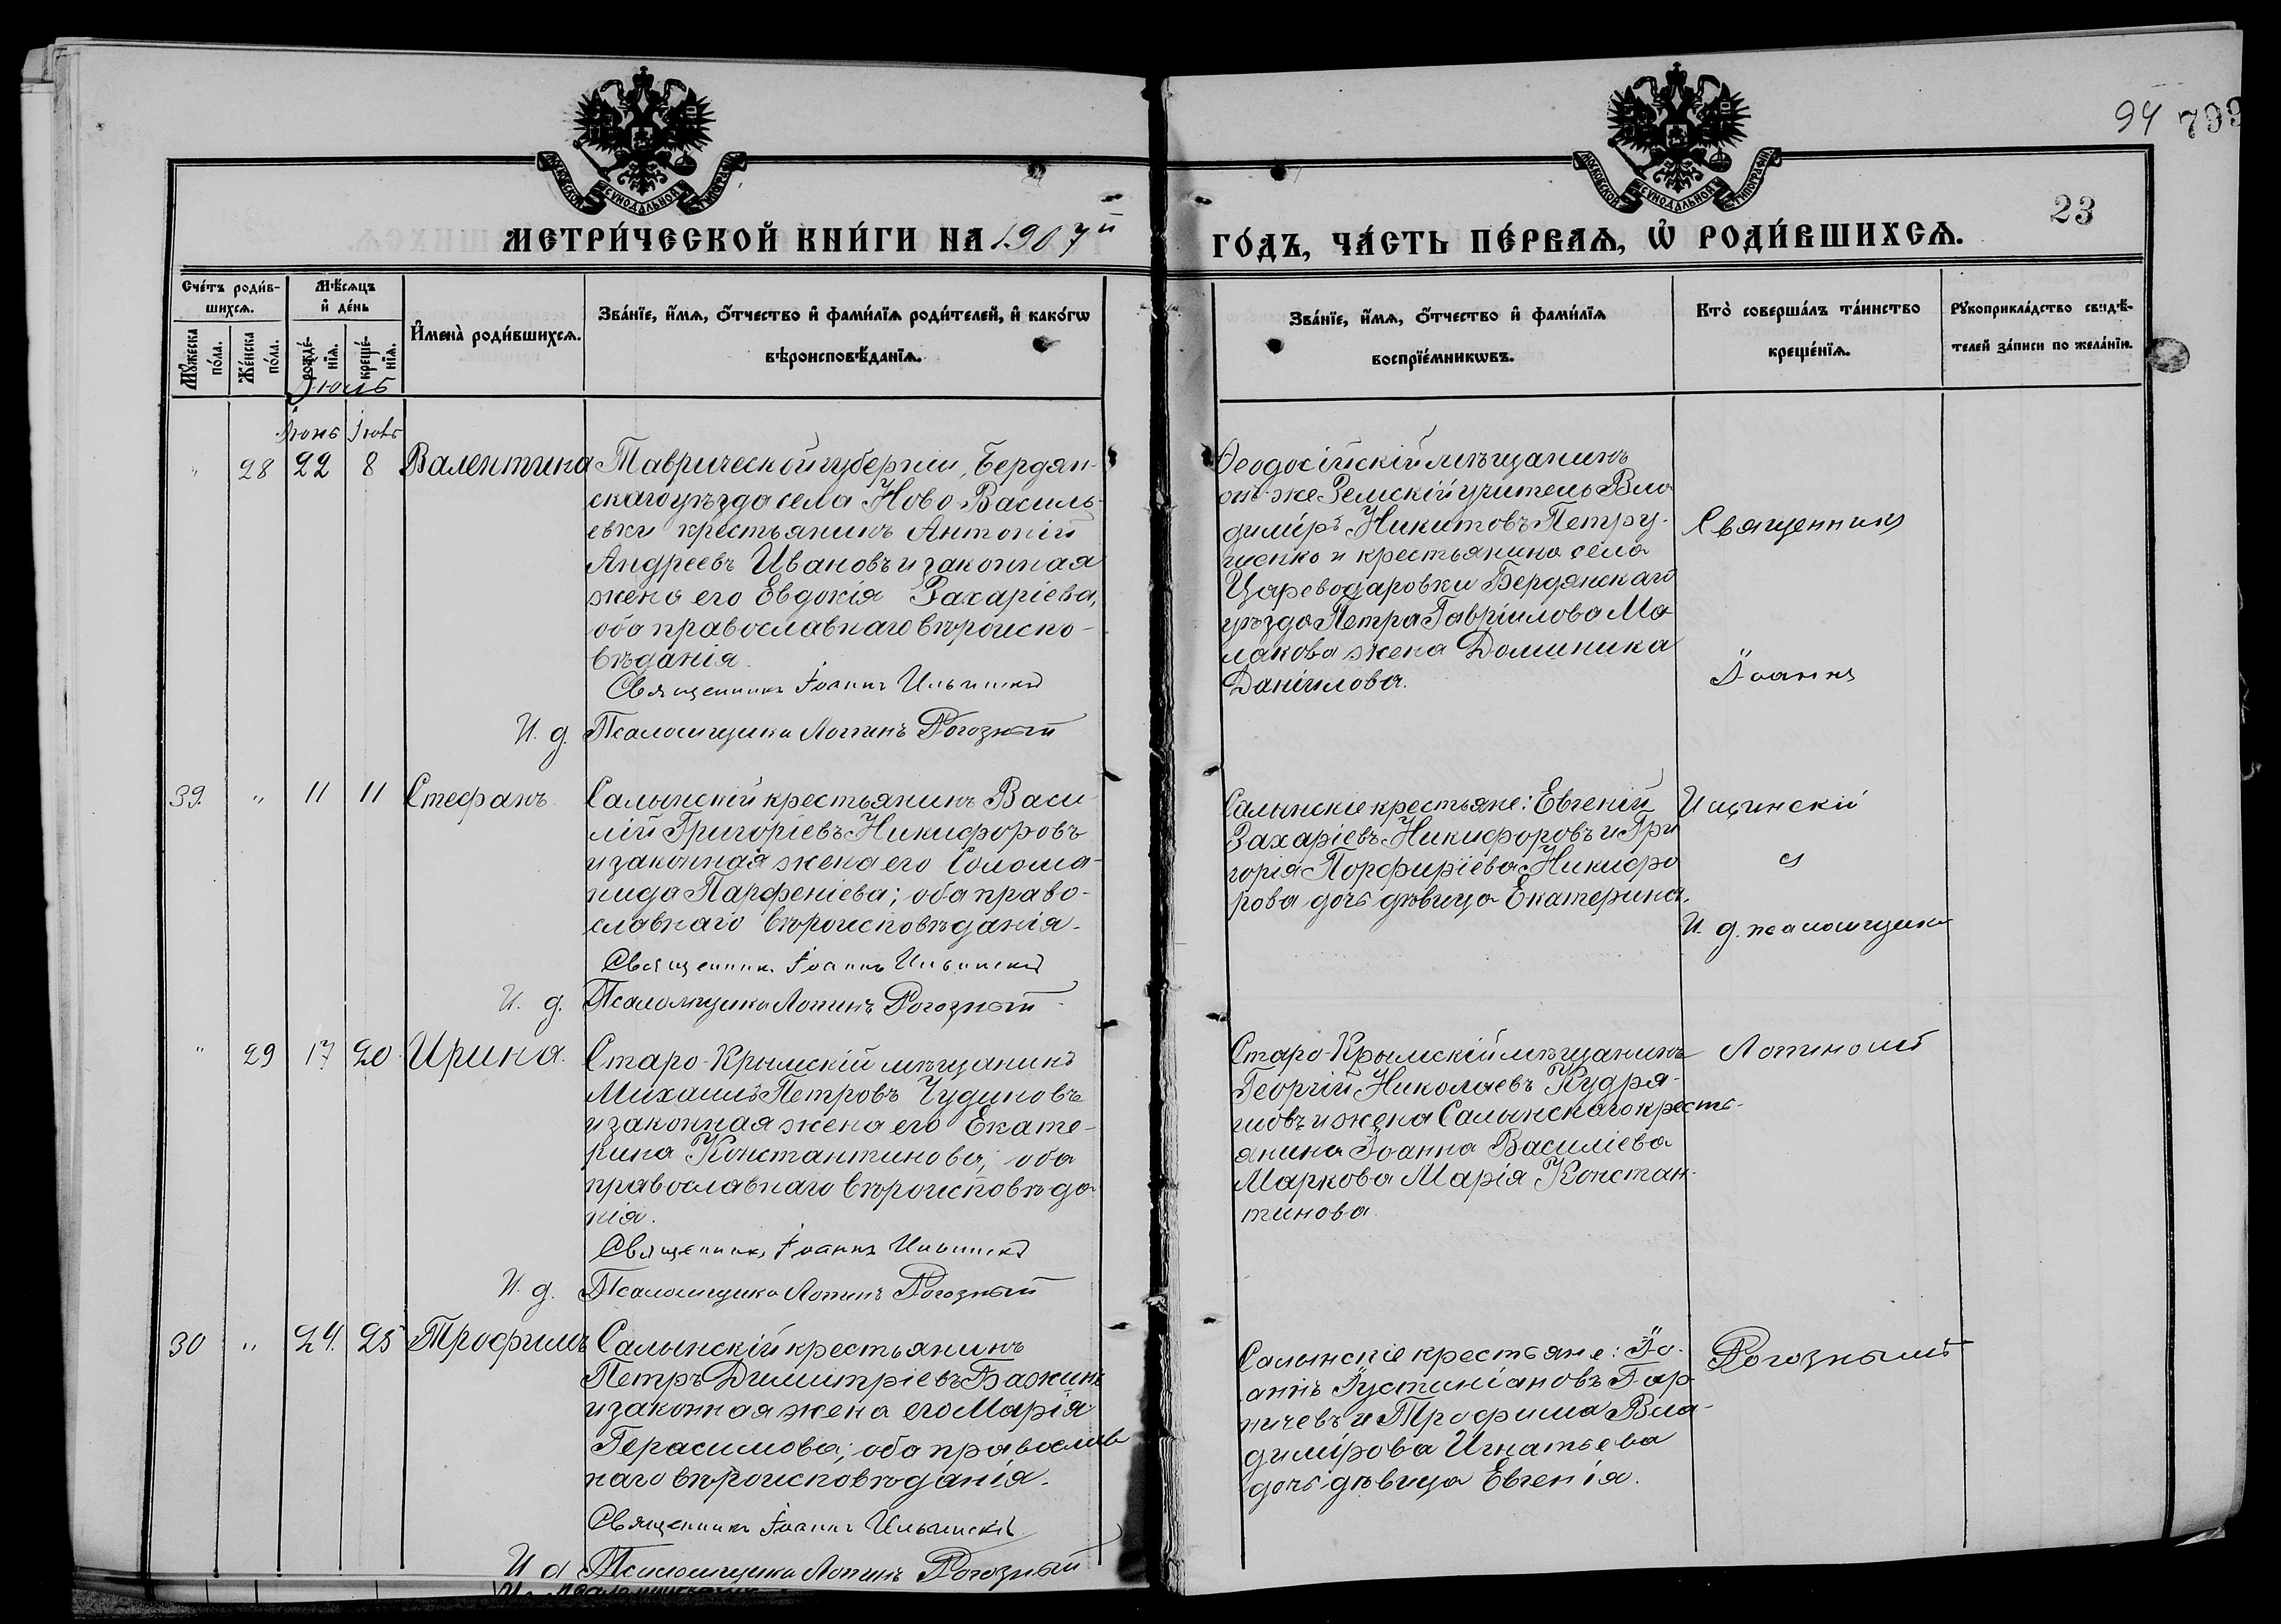 94 799
23
МОСКОВСКОЙ СѴНОДАЛЬНОЙ ТИПОГРАФІИ
МОСКОВСКОЙ СѴНОДАЛЬНОЙ ТИПОГРАФІИ
МЕТРИ́ЧЕСКОЙ КНИ́ГИ НА 1907й
ГО́ДЪ, ЧА́СТЬ ПЕ́РВАѦ, Ѡ҆ РОДИ́ВШИХСѦ.
Сче́тъ роди́в-
шихсѧ.
Мꙋ́жеска по́ла.
Же́нска по́ла.
Мѣ́сѧцъ
и҆ де́нь
рожде́-
нїѧ.
креще́-
нїѧ.
И҆мена̀ роди́вшихсѧ.
Зва́нїе, и҆́мѧ, ѻ҆́тчество и҆ фами́лїѧ роди́телей, и҆ како́гѡ
вѣроисповѣ́данїѧ.
Зва́нїе, и҆́мѧ, ѻ҆́тчество и҆ фами́лїѧ
воспрїе́мникѡвъ.
Кто̀ соверша́лъ та́инство
креще́нїѧ.
Рꙋкоприкла́дство свидѣ́-
телей за́писи по жела́нїю.
Іюль
Іюнь Іюль
" 28 22 8 Валентина
Таврической губерніи, Бердян-
скаго уѣзда села Ново-Василь-
евки крестьянинъ Антоній
Андреевъ Ивановъ и законная
жена его Евдокія Захаріева,
оба православнаго вѣроиспо-
вѣданія.
Священникъ Іоаннъ Ильинскій
И. д. Псаломщика Логинъ Рогозный
Ѳеодосійскій мѣщанинъ
онъ-же Земскій учитель Вла
диміръ Никитовъ Петру-
шенко и крестьянина села
Цареводаровки Бердянскаго
уѣзда Петра Гавріилова Ма-
лакова жена Доминика
Даніилова.
Священникъ
Іоаннъ
39. " 11 11 Стефанъ.
Салынскій крестьянинъ Васи-
лій Григоріевъ Никифоровъ
и законная жена его Солома-
нида Парфеніева; оба право-
славнаго вѣроисповѣданія.
Священникъ Іоаннъ Ильинскій
И. д. Псаломщика Логинъ Рогозный
Салынскіе крестьяне: Евгеній
Захаріевъ Никифоровъ и Гри
горія Порфиріева Никифо
рова дочь дѣвица Екатерина.
Ильинскій
съ
И. д. псаломщика
" 29 17 20. Ирина.
Старо-Крымскій мѣщанинъ
Михаилъ Петровъ Чудиновъ
и законная жена его Екате-
рина Константинова; оба
православнаго вѣроисповѣда-
нія.
Священникъ Іоаннъ Ильинскій
И. д. Псаломщика Логинъ Рогозный
Старо-Крымскій мѣщанинъ
Георгій Николаевъ Кудря-
шовъ и жена Салынскаго кресть-
янина Іоанна Василіева
Маркова Марія Констан-
тинова.
Логиномъ
30 " 24. 25 Трофимъ
Салынскій крестьянинъ
Петръ Димитріевъ Бажинъ
и законная жена его Марія
Герасимова; оба православ
наго вѣроисповѣданія.
Священникъ Іоаннъ Ильинскій
И д Псаломщика Логинъ Рогозный
Салынскіе крестьяне: Іо-
аннъ Іустиніановъ Гар
ничевъ и Трофима Вла-
димірова Игнатьева
дочь дѣвица Евгенія.
Рогознымъ